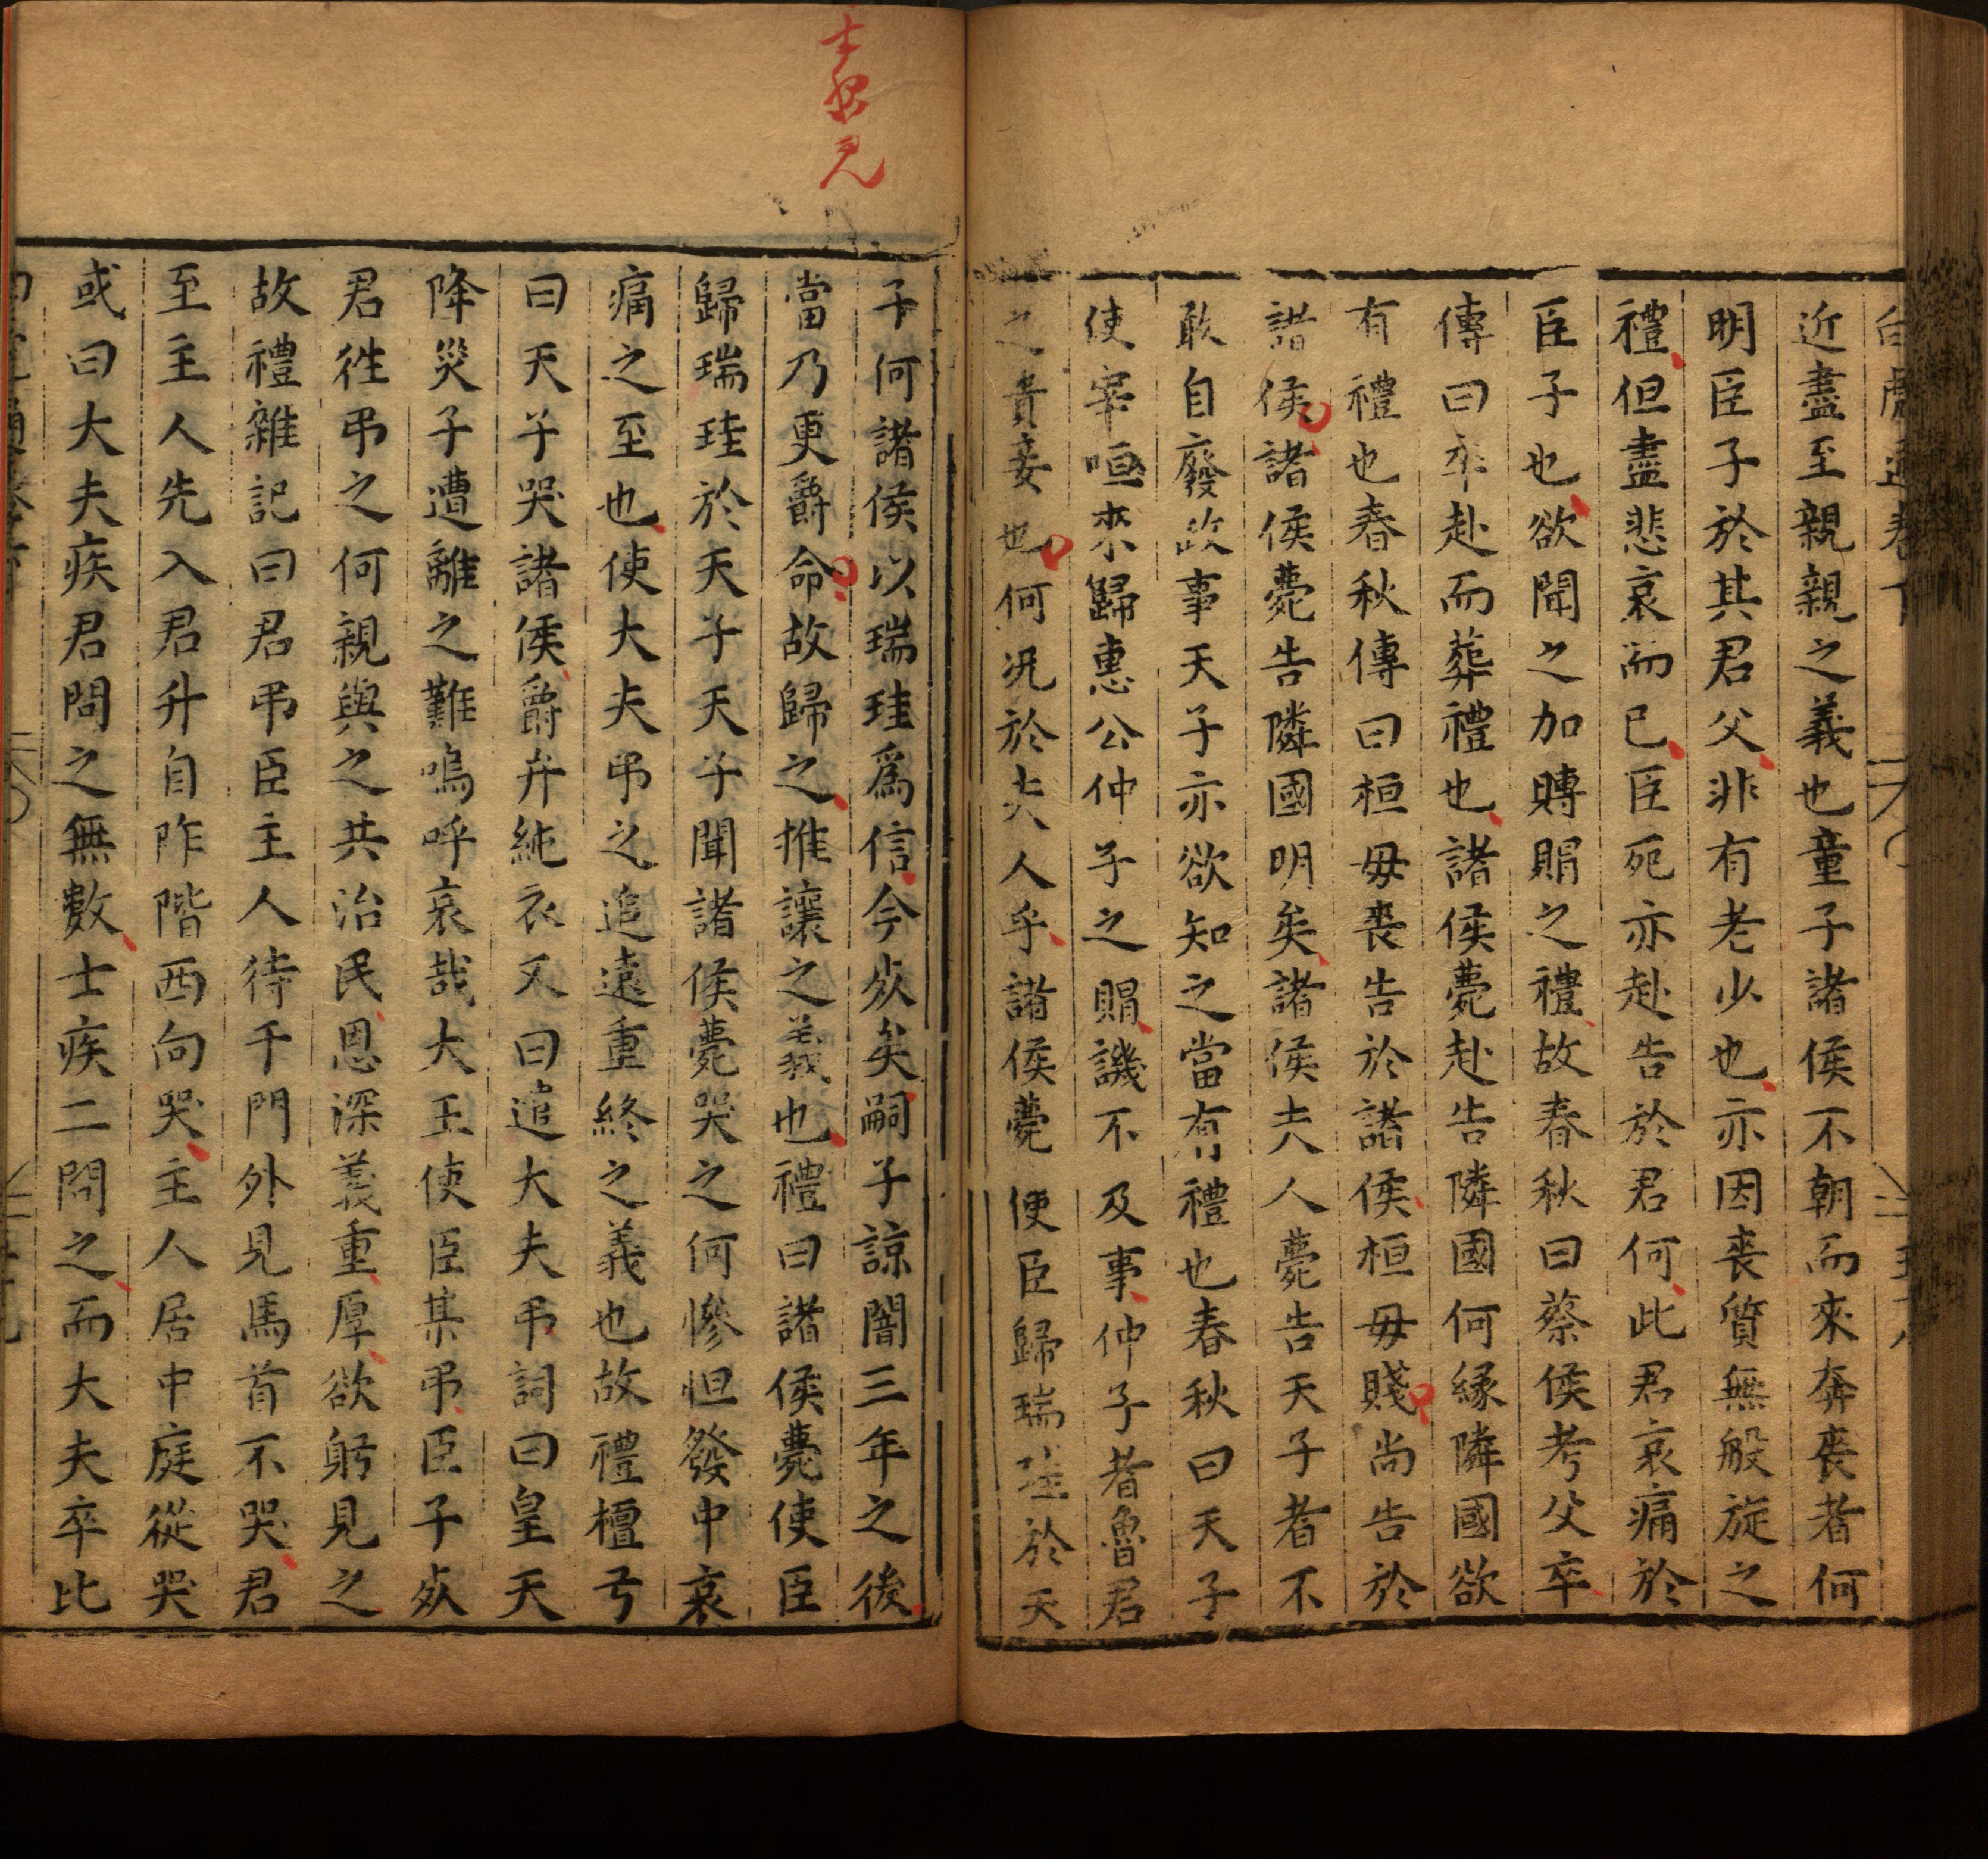 近盡至親親之義也童子諸侯不朝而來奔喪者何
明臣子於其君父非有老少也亦因喪質無般旋之
禮但盡悲哀而已臣死亦赴告於君何此君哀痛於
臣子也欲聞之加賻賵之禮故春秋曰蔡侯考父卒
傳曰卒赴而葬禮也諸侯薨赴告隣國何縁隣國欲
有禮也春秋傳曰桓毋喪告於諸侯桓毋賤尚告於
諸侯諸侯薨告隣國明矣諸侯夫人薨告天子者不
敢自廢政事天子亦欲知之當有禮也春秋曰天子
使宰咺來歸惠公仲子之賵譏不及事仲子者魯君
之貴妾也何況於夫人乎諸侯薨使臣歸瑞珪於天
子何諸侯以瑞珪爲信今死矣嗣子諒闇三年之後
當乃更爵命故歸之推讓之義也禮曰諸侯薨使臣
歸瑞珪於天子天子聞諸侯薨哭之何慘怛發中哀
痛之至也使大夫弔之追遠重終之義也故禮檀弓
曰天子哭諸侯爵弁純衣又曰遣大夫弔詞曰皇天
降災子遭離之難嗚呼哀哉大王使臣某弔臣子死
君徃弔之何親與之共治民恩深義重厚欲躬見之
故禮雜記曰君弔臣主人待于門外見馬首不哭君
至主人先入君升自阼階西向哭主人居中庭從哭
或曰大夫疾君問之無數士疾二問之而大夫卒比